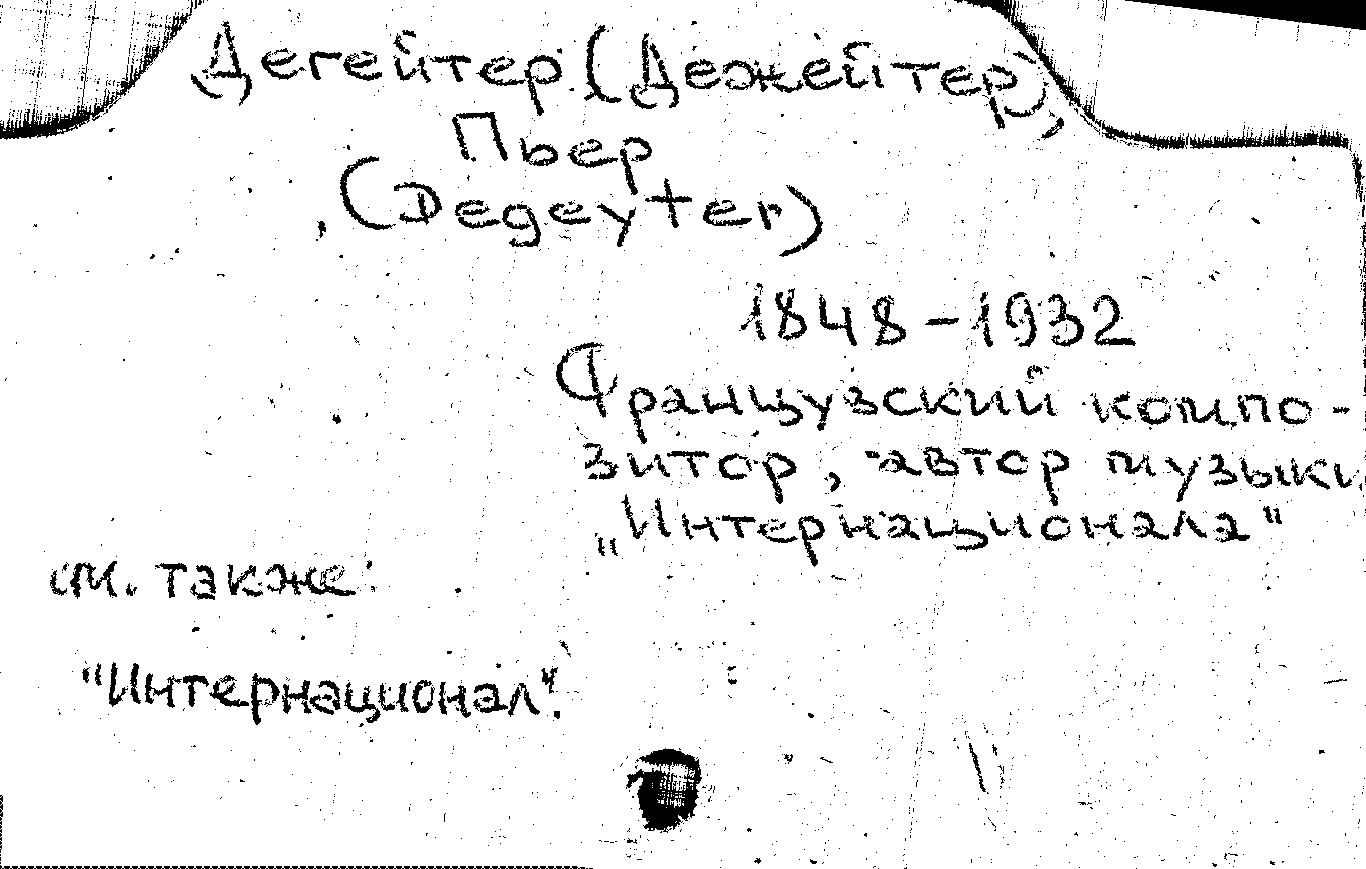 Дегейтер (Дежейтер),
Пьер
(Degeyter)
1848-1932
Французский компо-
зитор, автор музыки
„Интернационала"
см. также:
"Интернационал".